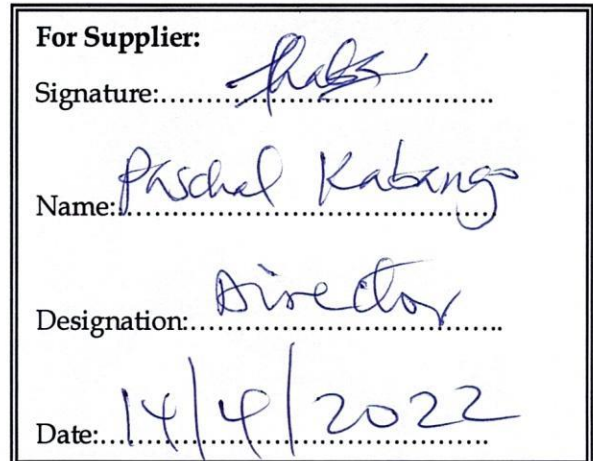 For Supplier:
Signature:....................................
Name: Paschal Kabango
Designation: Director
Date: 14/4/2022